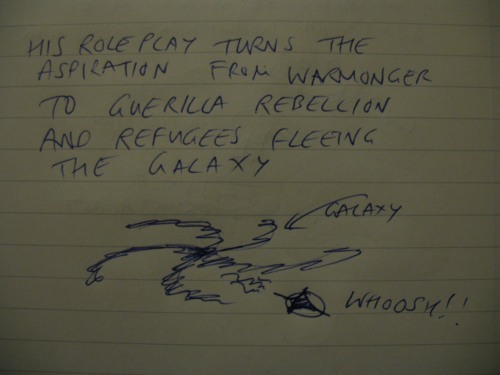 HIS ROLEPLAY TURNS THE
ASPIRATION FROM WARMONGER
TO GUERILLA REBELLION
AND REFUGEES FLEEING
THE GALAXY
GALAXY
WHOOSH!!